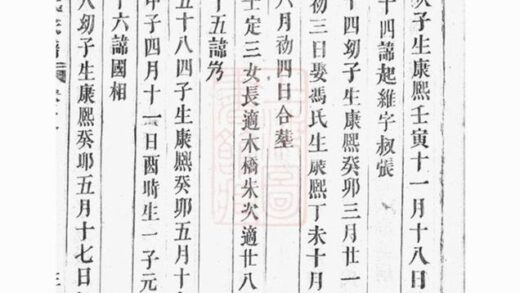 次子生康熙壬寅十一月十八日
十四諱起維字叔張
十四幼子生康熙癸卯三月廿一
初三日娶馮氏生康熙丁未十月
八月初四日合塟
士定三女長適木橋朱次適廿八
十五諱
五十八四子生康熙癸卯五月十
甲子四月十一日酉時生一子元
十六諱國相
八幼子生康熙癸卯五月十七日